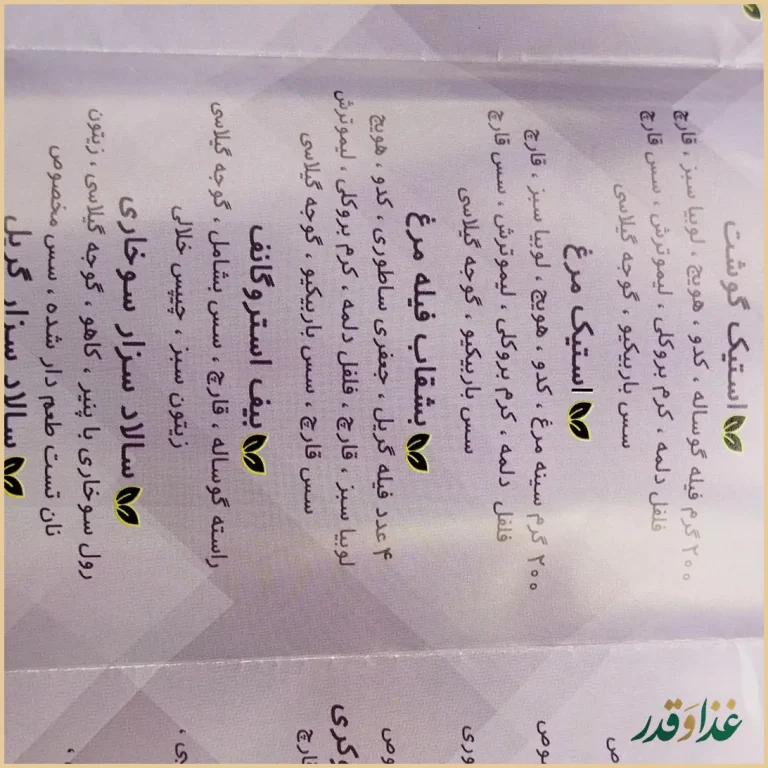 استیک گوشت
۲۰۰ گرم فیله گوساله ، کدو ، هویج ، لوبیا سبز ، قارچ
فلفل دلمه ، کرم بروکلی ، لیموترش ، سس قارچ
سس باربیکیو ، گوجه گیلاسی
استیک مرغ
۲۰۰ گرم سینه مرغ ، کدو ، هویج ، لوبیا سبز ، قارچ
فلفل دلمه ، کرم بروکلی ، لیموترش ، سس قارچ
سس باربیکیو ، گوجه گیلاسی
بشقاب فیله مرغ
۴ عدد فیله گریل ، جعفری ساطوری ، کدو ، هویج
لوبیا سبز ، قارچ ، فلفل دلمه ، کرم بروکلی ، لیموترش
سس قارچ ، سس باربیکیو ، گوجه گیلاسی
بیف استروگانف
راسته گوساله ، قارچ ، سس بشامل ، گوجه گیلاسی
زیتون سبز ، چیپس خلالی
سالاد سزار سوخاری
رول سوخاری با پنیر ، کاهو ، گوجه گیلاسی ، زیتون
نان تست طعم دار شده ، سس مخصوص
سالاد سزار گریل
غذا و قدر